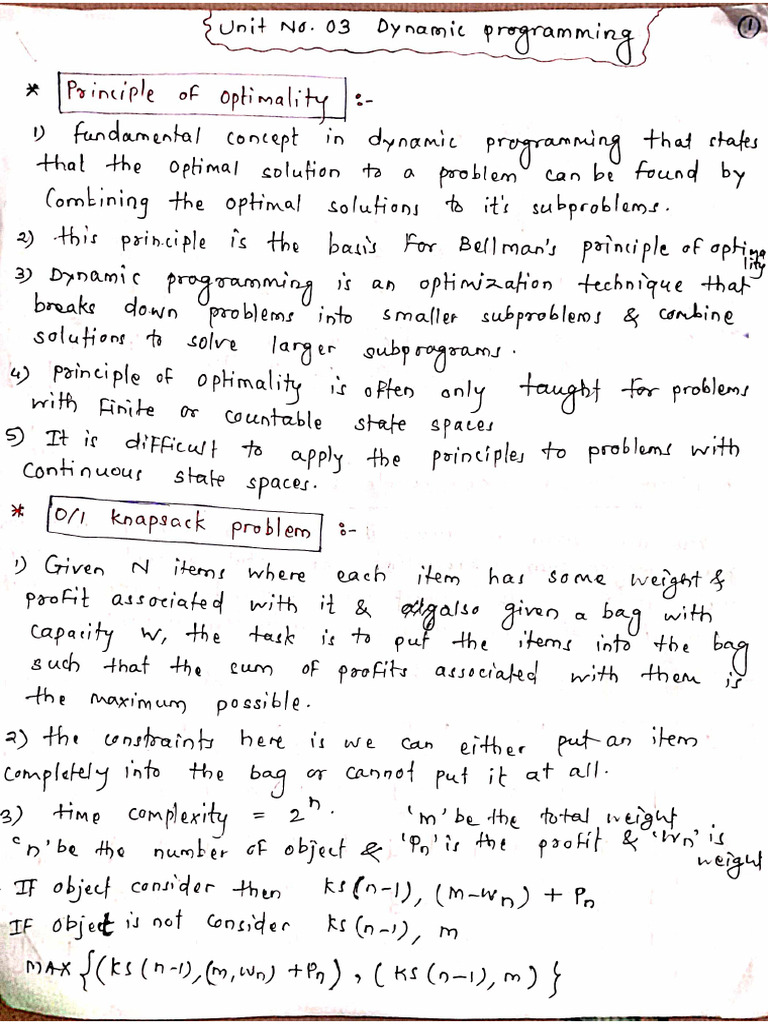 Unit No. 03 Dynamic programming
1
* Principle of optimality :-
1) fundamental concept in dynamic programming that states
that the optimal solution to a problem can be found by
Combining the optimal solutions to it's subproblems.
2) this principle is the basis for Bellman's principle of optimality
3) Dynamic programming is an optimization technique that
breaks down problems into smaller subproblems & combine
solutions to solve larger subprograms.
4) principle of optimality is often only taught for problems
with finite or countable state spaces
5) It is difficult to apply the principles to problems with
continuous state spaces.
* 0/1 knapsack problem :-
1) Given N items where each item has some weight &
profit associated with it & also given a bag with
capacity W, the task is to put the items into the bag
such that the sum of profits associated with them is
the maximum possible.
2) the constraints here is we can either put an item
completely into the bag or cannot put it at all.
3) time complexity = 2^n. 'm' be the total weight
'n' be the number of object & 'Pn' is the profit & 'Wn' is
weight
- IF object consider then KS(n-1), (m-wn) + Pn
IF object is not consider KS(n-1), m
MAX {(KS(n-1),(m,wn) +Pn), (KS(n-1),m)}